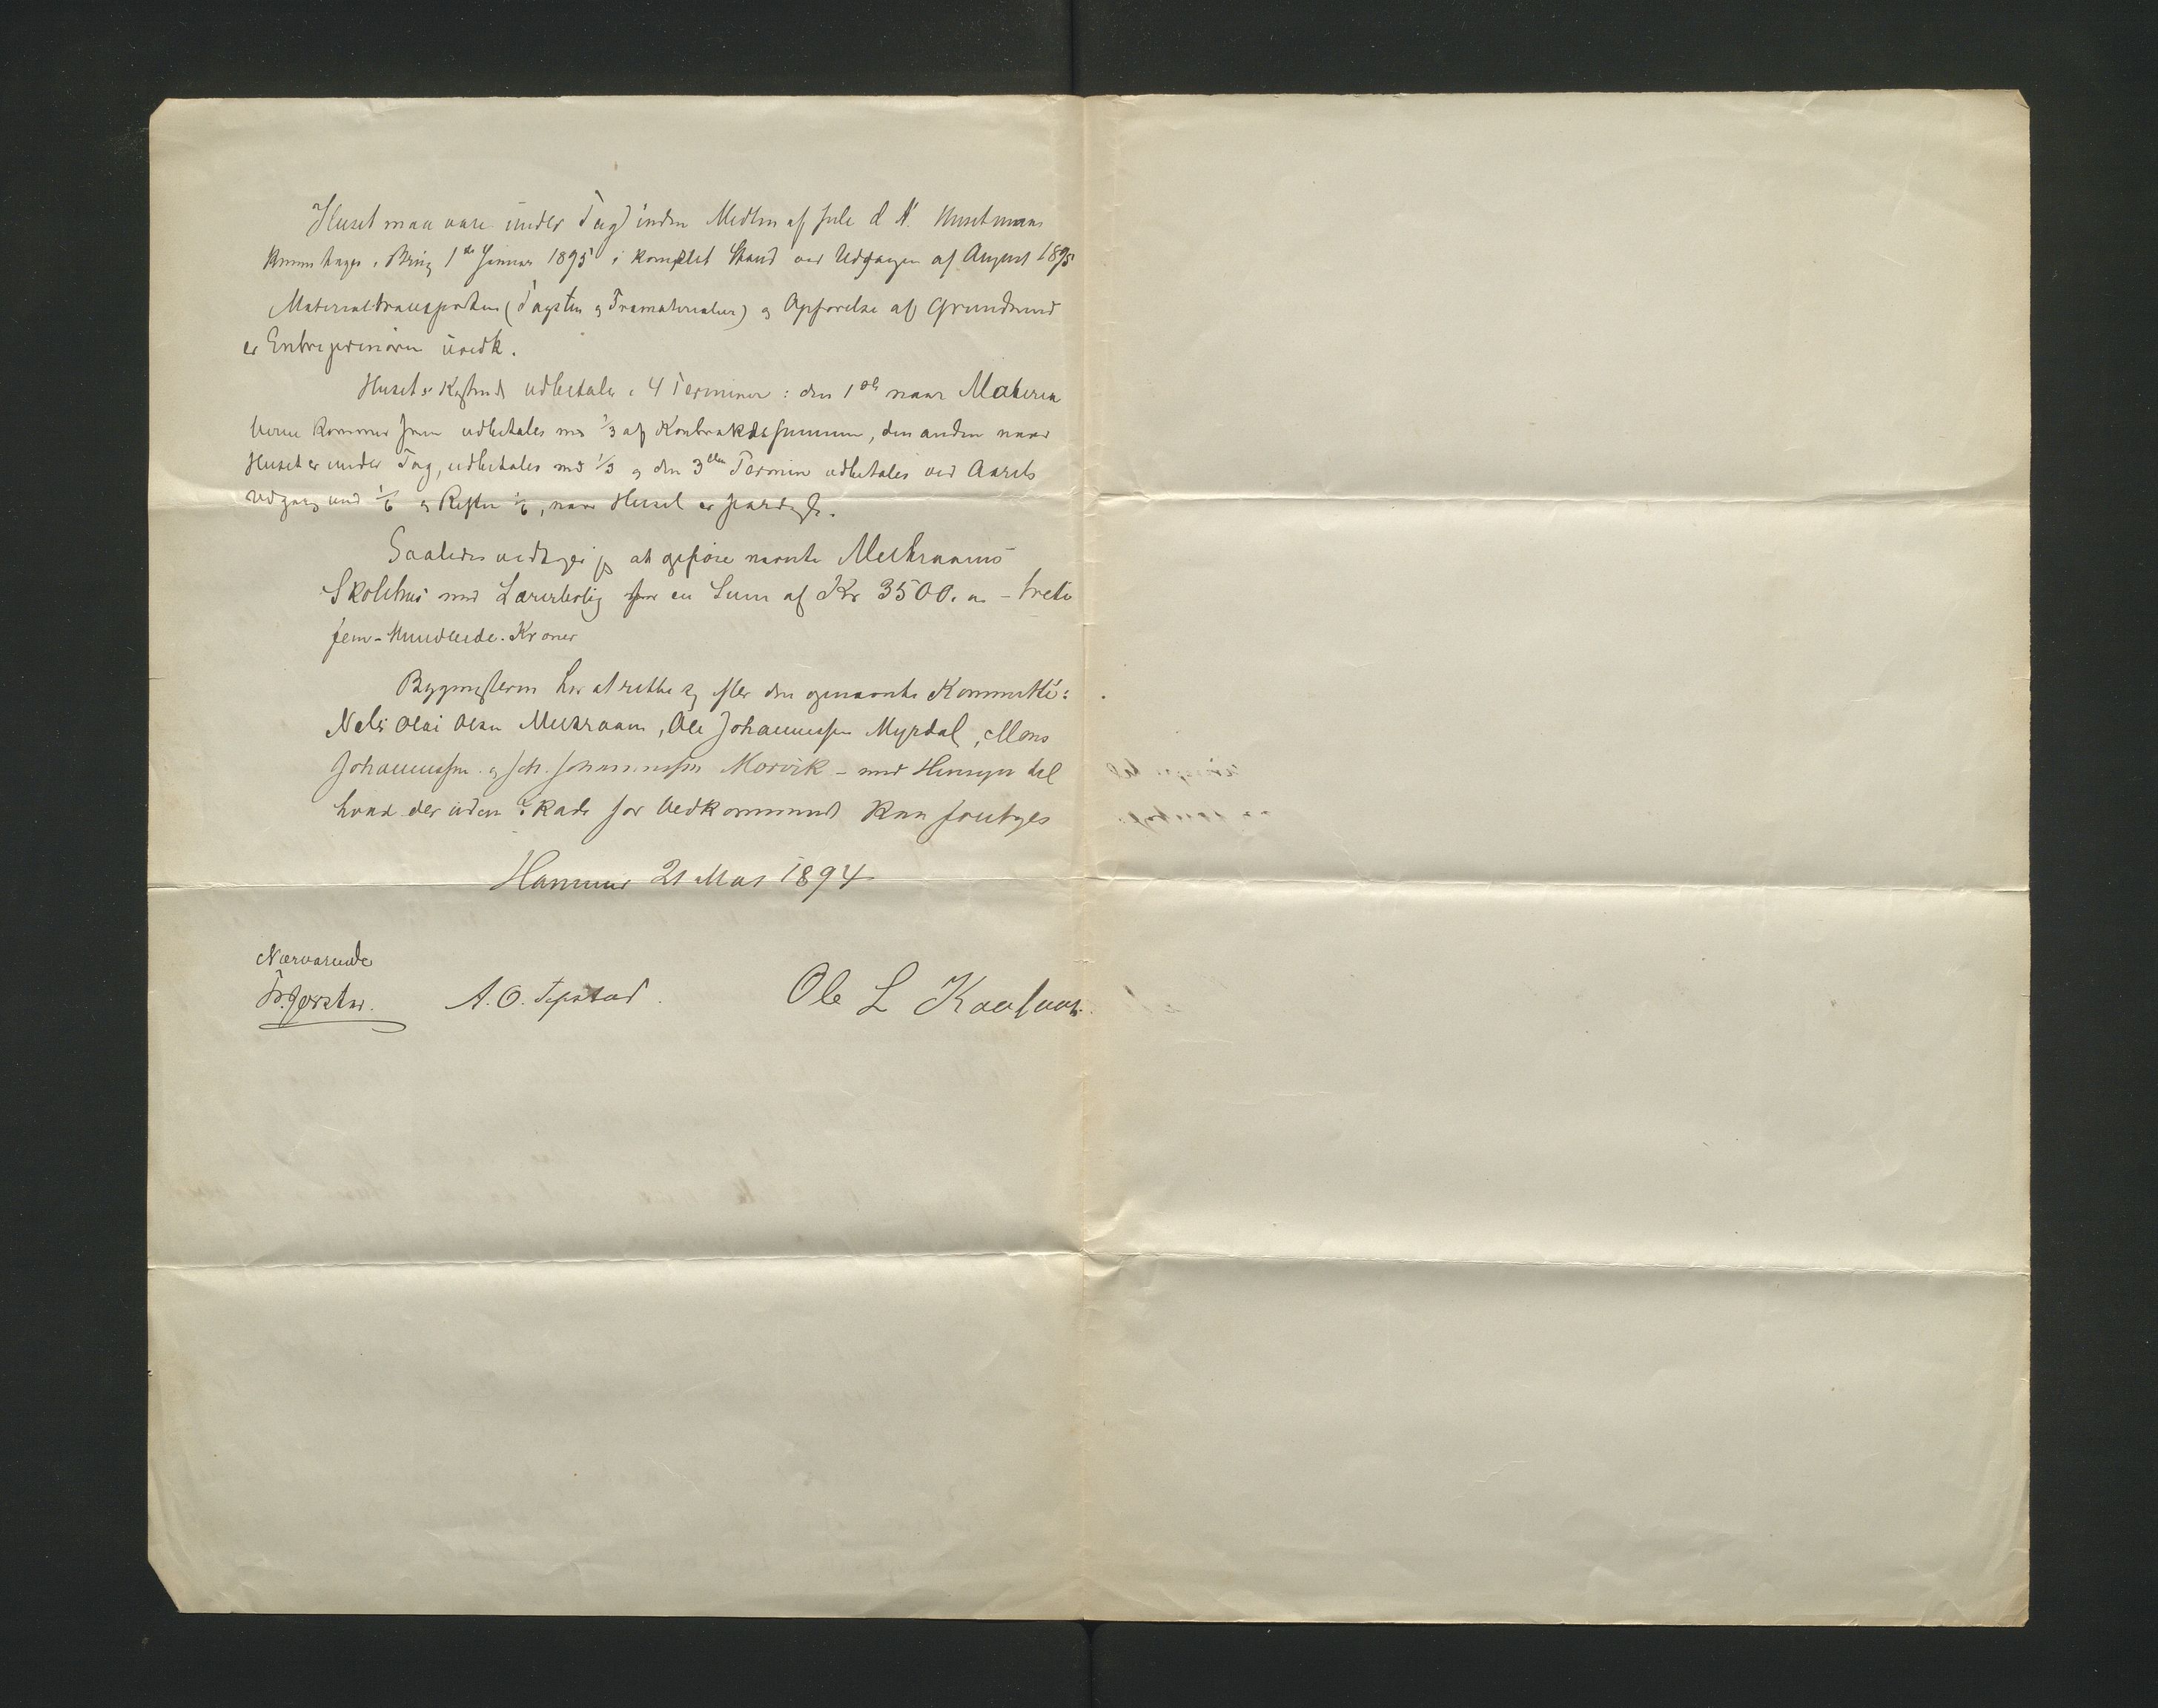 Huset maa være under Tag inden Midten af Juli d A. Huset maa
kunne tages i Brug 1ste Januar 1895 i komplet Stand ved Udgangen af August 1895
Materialtransporten (Tagsten og Træmaterialier) og Opførelse af Grundmur
er Entreprenøren uvedk.
Husets Kostende udbetales i 4 Terminer: den 1ste naar Materia
lierne kommer frem udbetales med 1/3 af Kontraktssummen, den anden naar
Huset er under Tag, udbetales med 1/3 og den 3die Termin udbetales ved Aarets
Udgang med 1/6 og Resten 1/6, naar Huset er færdigt.
Saaledes vedtager jeg at opføre nævnte Mælkraams
Skolehus med Lærerbolig for en Sum af Kr 3500.00 - tretu
fem-Hundrede-Kroner
Bygmesteren har at rette sig efter den opnævnte Kommitté:
Nels Olai Olsen Melkraam, Ole Johannessen Myrdal, Mons
Johannessen og Joh. Johannessen Morvik - med Hensyn til
hvad der uden Skade for Vedkommende kan foretages
Hammer 21 Mai 1894
Nærværende
A. O. Tepstad. Ole L Kaalaas.